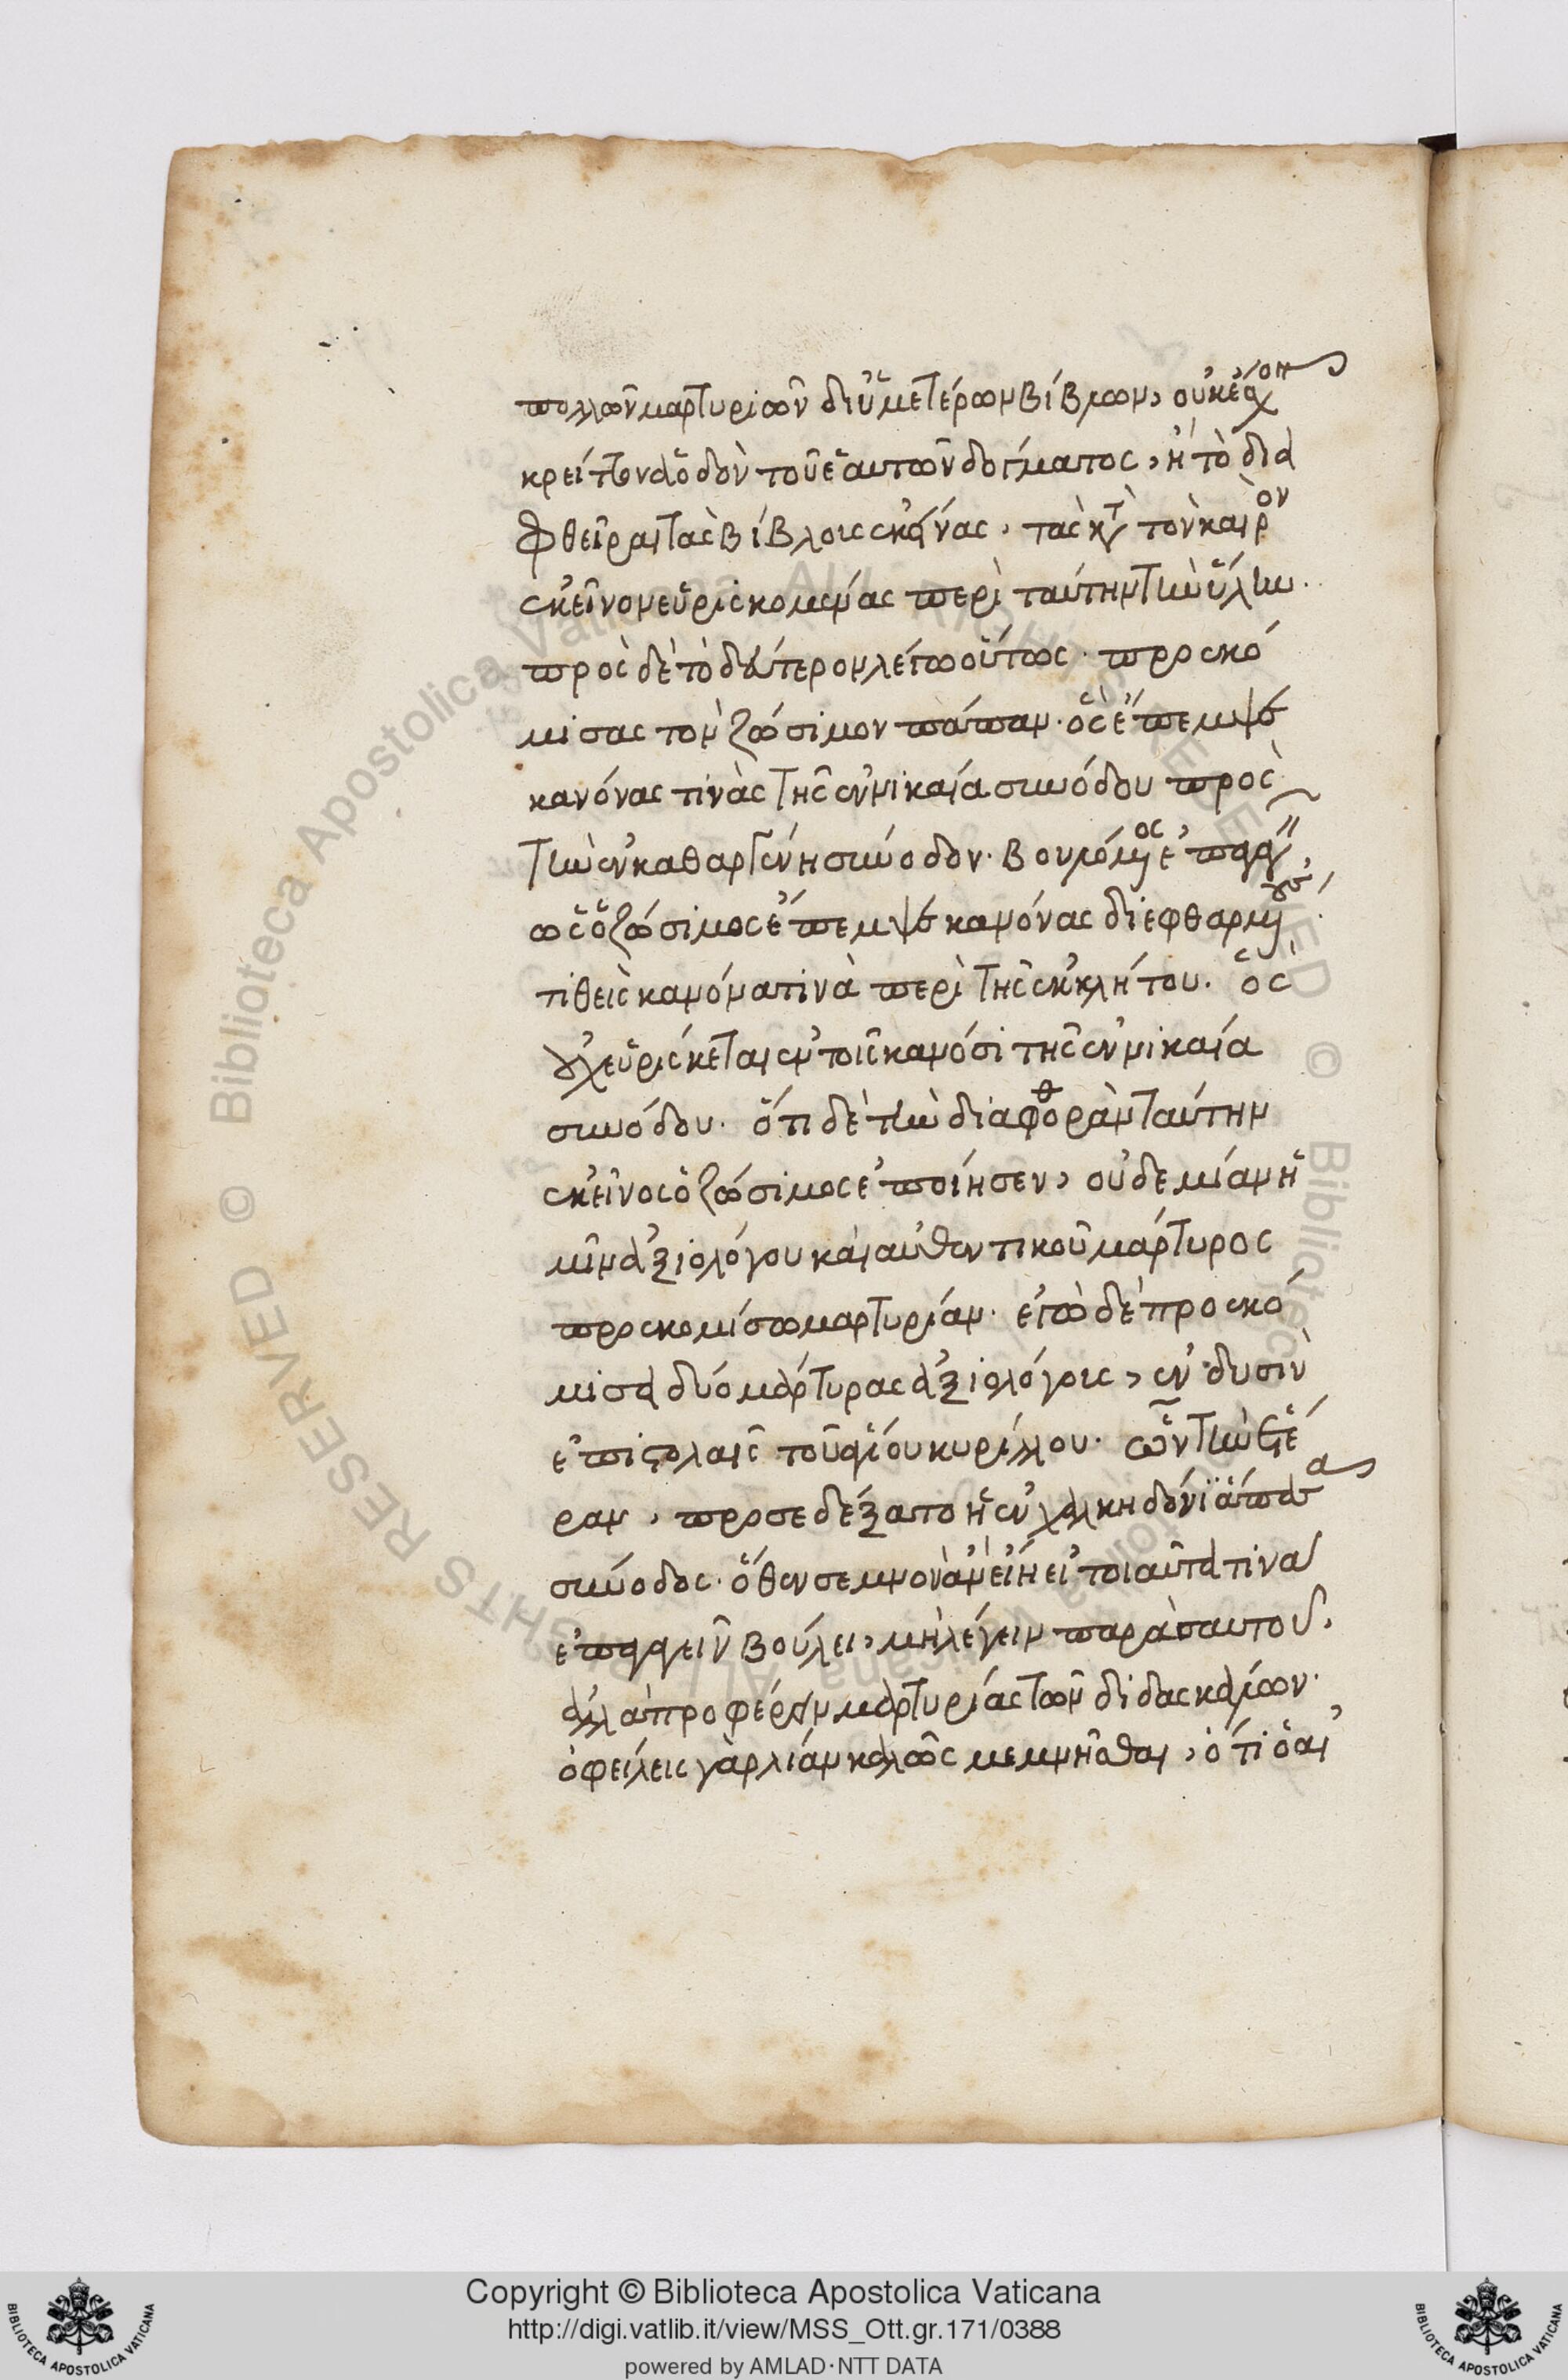 πολλῶν μαρτυριῶν δι' ὑμετέρων βίβλων, οὐκ ἔσχον
κρείττονα ὁδὸν τοῦ ἑαυτῶν δόγματος, ἢ τὸ δια
φθεῖραι τὰς βίβλους ἐκείνας, τὰς κατὰ τὸν καιρὸν
ἐκεῖνον εὑρισκομένας περὶ ταύτην τὴν ὕλην.
πρὸς δὲ τὸ δεύτερον λέγω οὕτως. προσκό
μισας τὸν ζώσιμον πάπαν. ὃς ἔπεμψε
κανόνας τινὰς τῆς ἐν νικαία συνόδου πρὸς
τὴν ἐν καθαργένη σύνοδον. βουλόμενος
ὡς ὁ ζώσιμος ἔπεμψε κανόνας διεφθαρμένους.
τιθεὶς κανόνα τινὰ περὶ τῆς ἐκκλήτου. ὃς
οὐχ εὑρίσκεται ἐν τοῖς κανόσι τῆς ἐν νικαία
συνόδου. ὅτι δὲ τὴν διαφθορὰν ταύτην
ἐκεῖνος ὁ ζώσιμος ἐποίησεν, οὐδεμίαν ἡ
μῖν ἀξιολόγου καὶ αὐθεντικοῦ μάρτυρος
προσκομίσω μαρτυρίαν. ἐγὼ δὲ προσκό
μισα δύο μάρτυρας ἀξιολόγους, ἐν δυσὶν
ἐπιστολαῖς τοῦ ἁγίου κυρίλλου. ὧν τὴν ἑτέ
ραν, προσεδέξατο ἡ ἐν χαλκηδόνι ἅπασα
σύνοδος. ὅθεν σεμνὸν ἂν εἴη εἰ τοιαῦτά τινα
ἐπάγειν βούλει, μὴ λέγειν παρὰ σαυτοῦ,
ἀλλὰ προφέρειν μαρτυρίας τῶν διδασκάλων.
ὀφείλεις γὰρ λίαν καλῶς μεμνῆσθαι, ὅτι ὁ αἰ
Copyright © Biblioteca Apostolica Vaticana
http://digi.vatlib.it/view/MSS_Ott.gr.171/0388
powered by AMLAD·NTT DATA
BIBLIOTECA APOSTOLICA VATICANA
BIBLIOTECA APOSTOLICA VATICANA